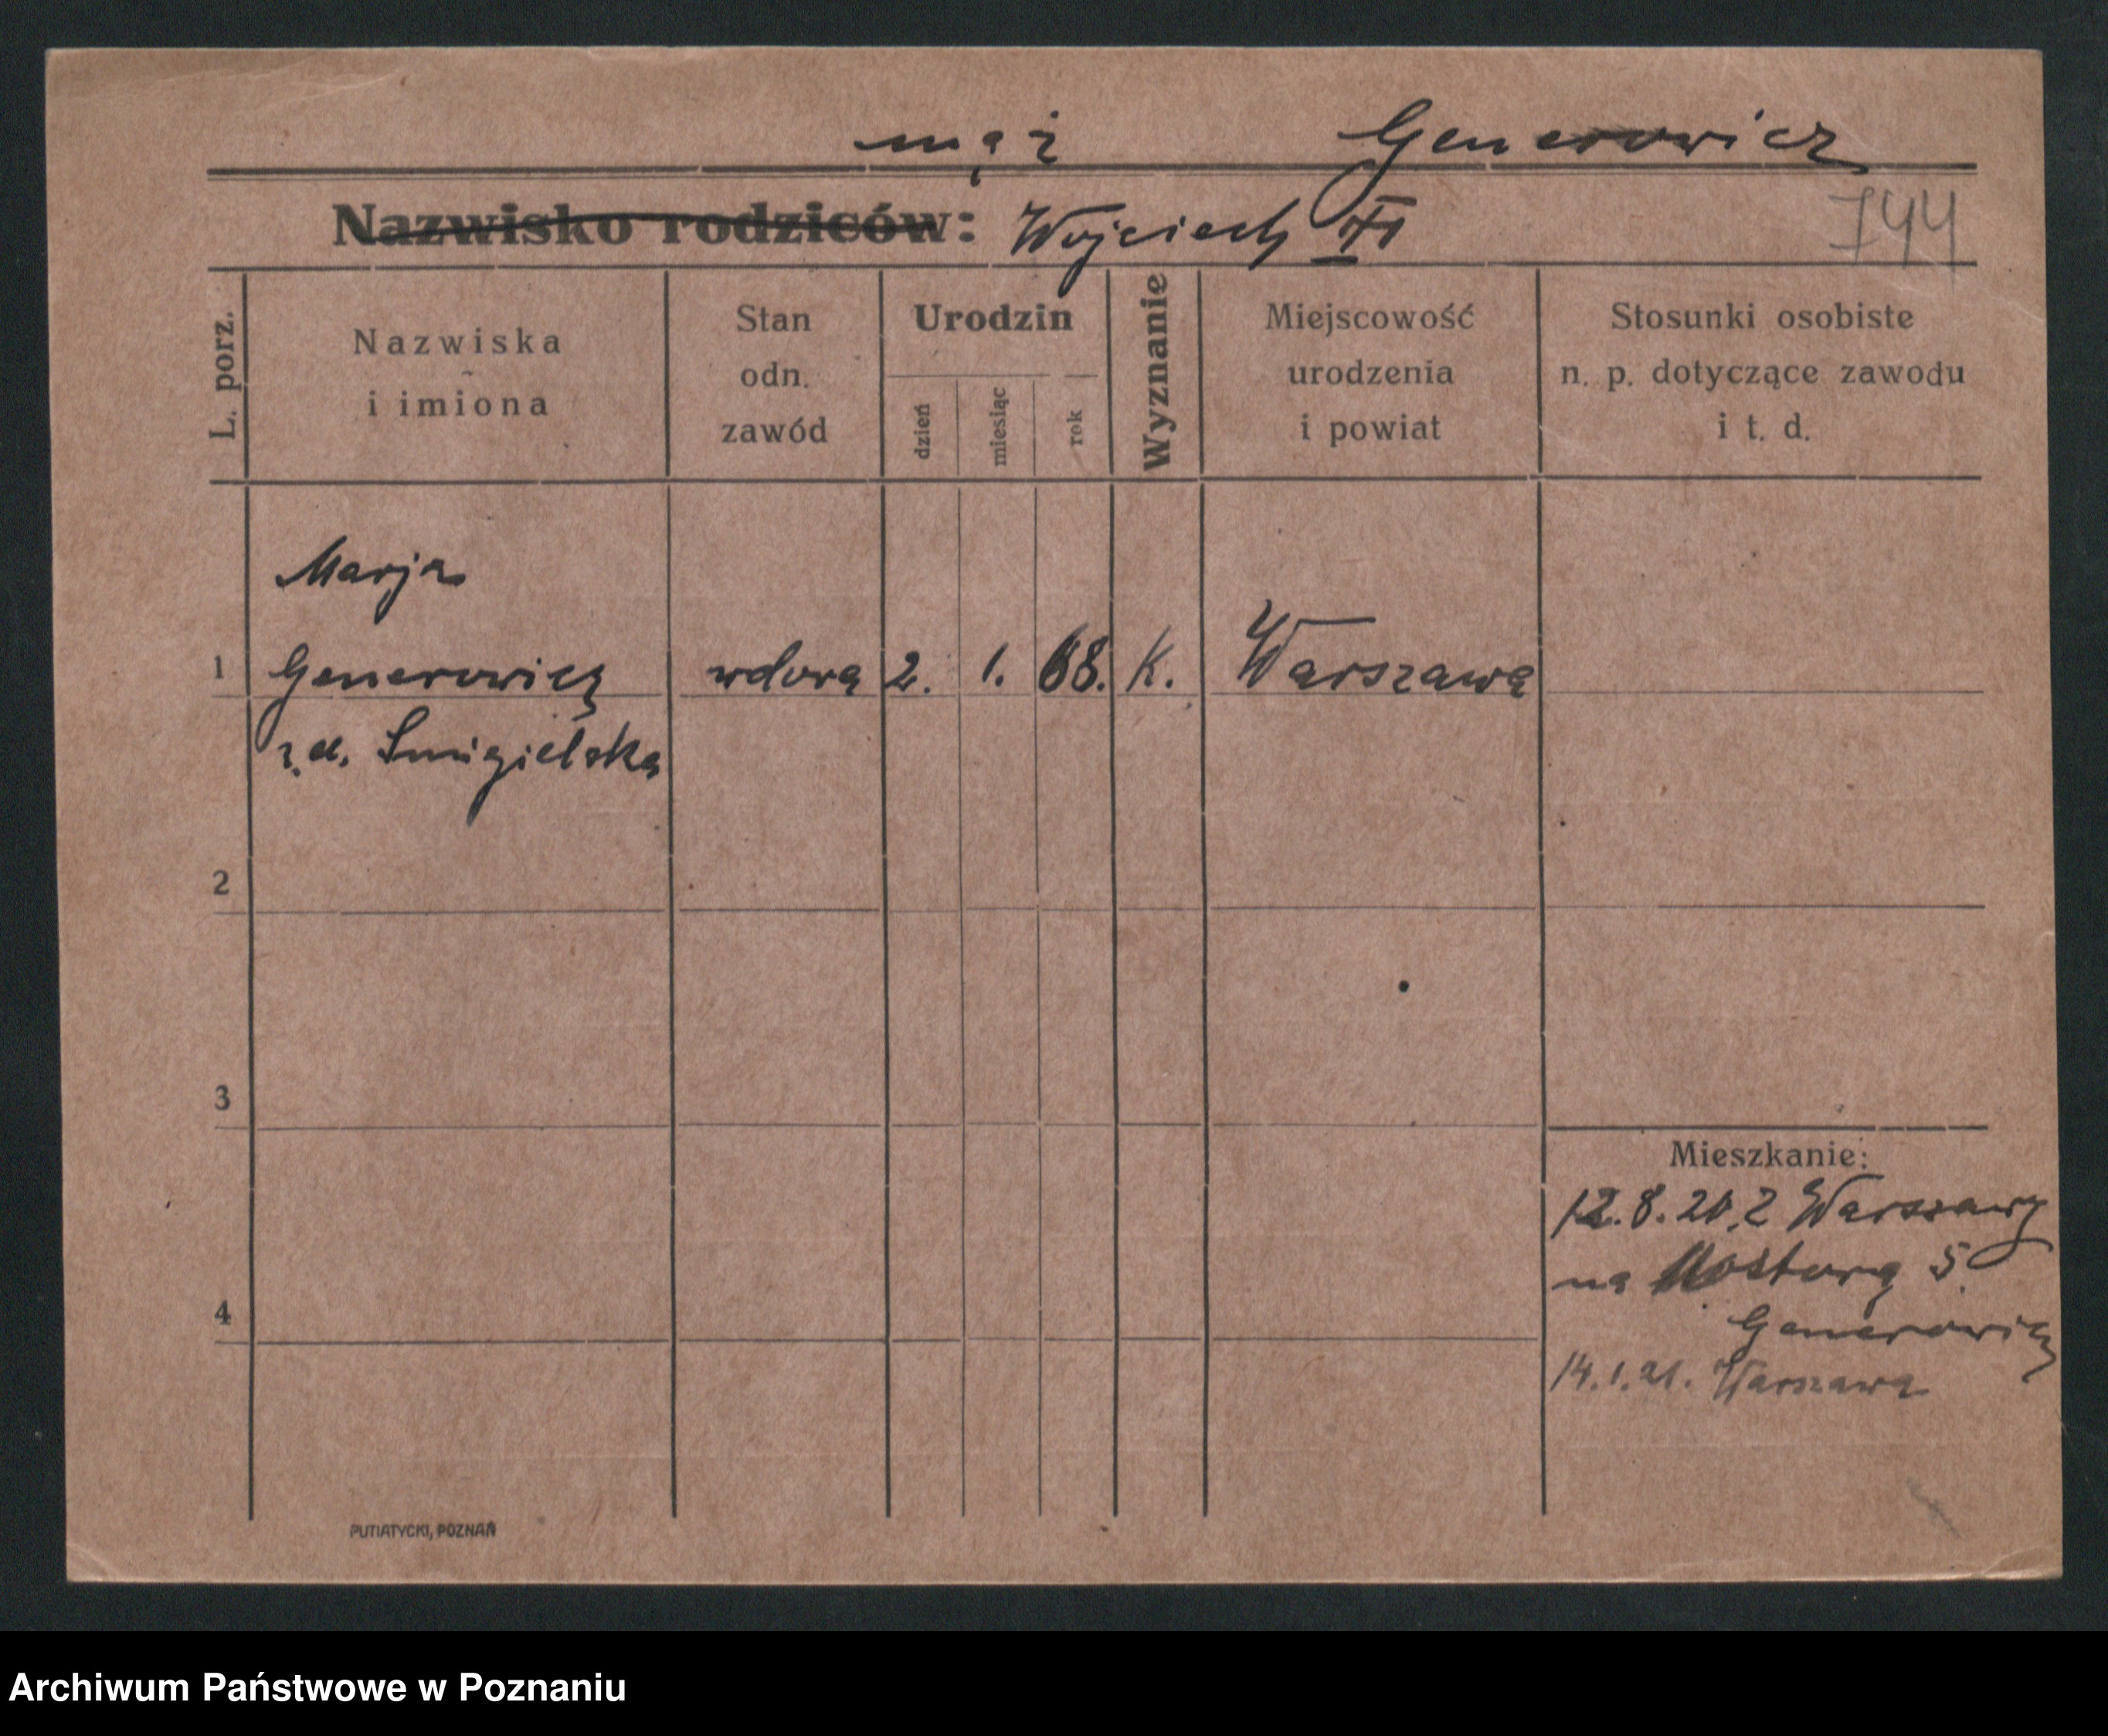 mąż Generowicz
Nazwisko rodziców: Wojciech
744
L. porz.
Nazwiska
i imiona
Stan
odn.
zawód
Urodzin
dzień
miesiąc
rok
Wyznanie
Miejscowość
urodzenia
i powiat
Stosunki osobiste
n. p. dotyczące zawodu
i t. d.
Marja
1 Generowicz wdowa 2. 1. 68. K. Warszawa
Smigielska
2
3
Mieszkanie:
12.8.20. z Warszawy
na Mostową 5
4
Generowicz
14.1.21. Warszawa
PUTIATYCKI, POZNAŃ
Archiwum Państwowe w Poznaniu